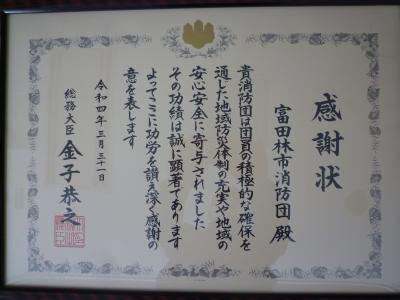 感謝状
富田林市消防団 殿
貴消防団は団員の積極的な確保を
通じた地域防災体制の充実や地域の
安心安全に寄与されました
その功績は誠に顕著であります
よってここに功労を讃え深く感謝の
意を表します
令和四年三月三十一日
総務大臣 金子恭之